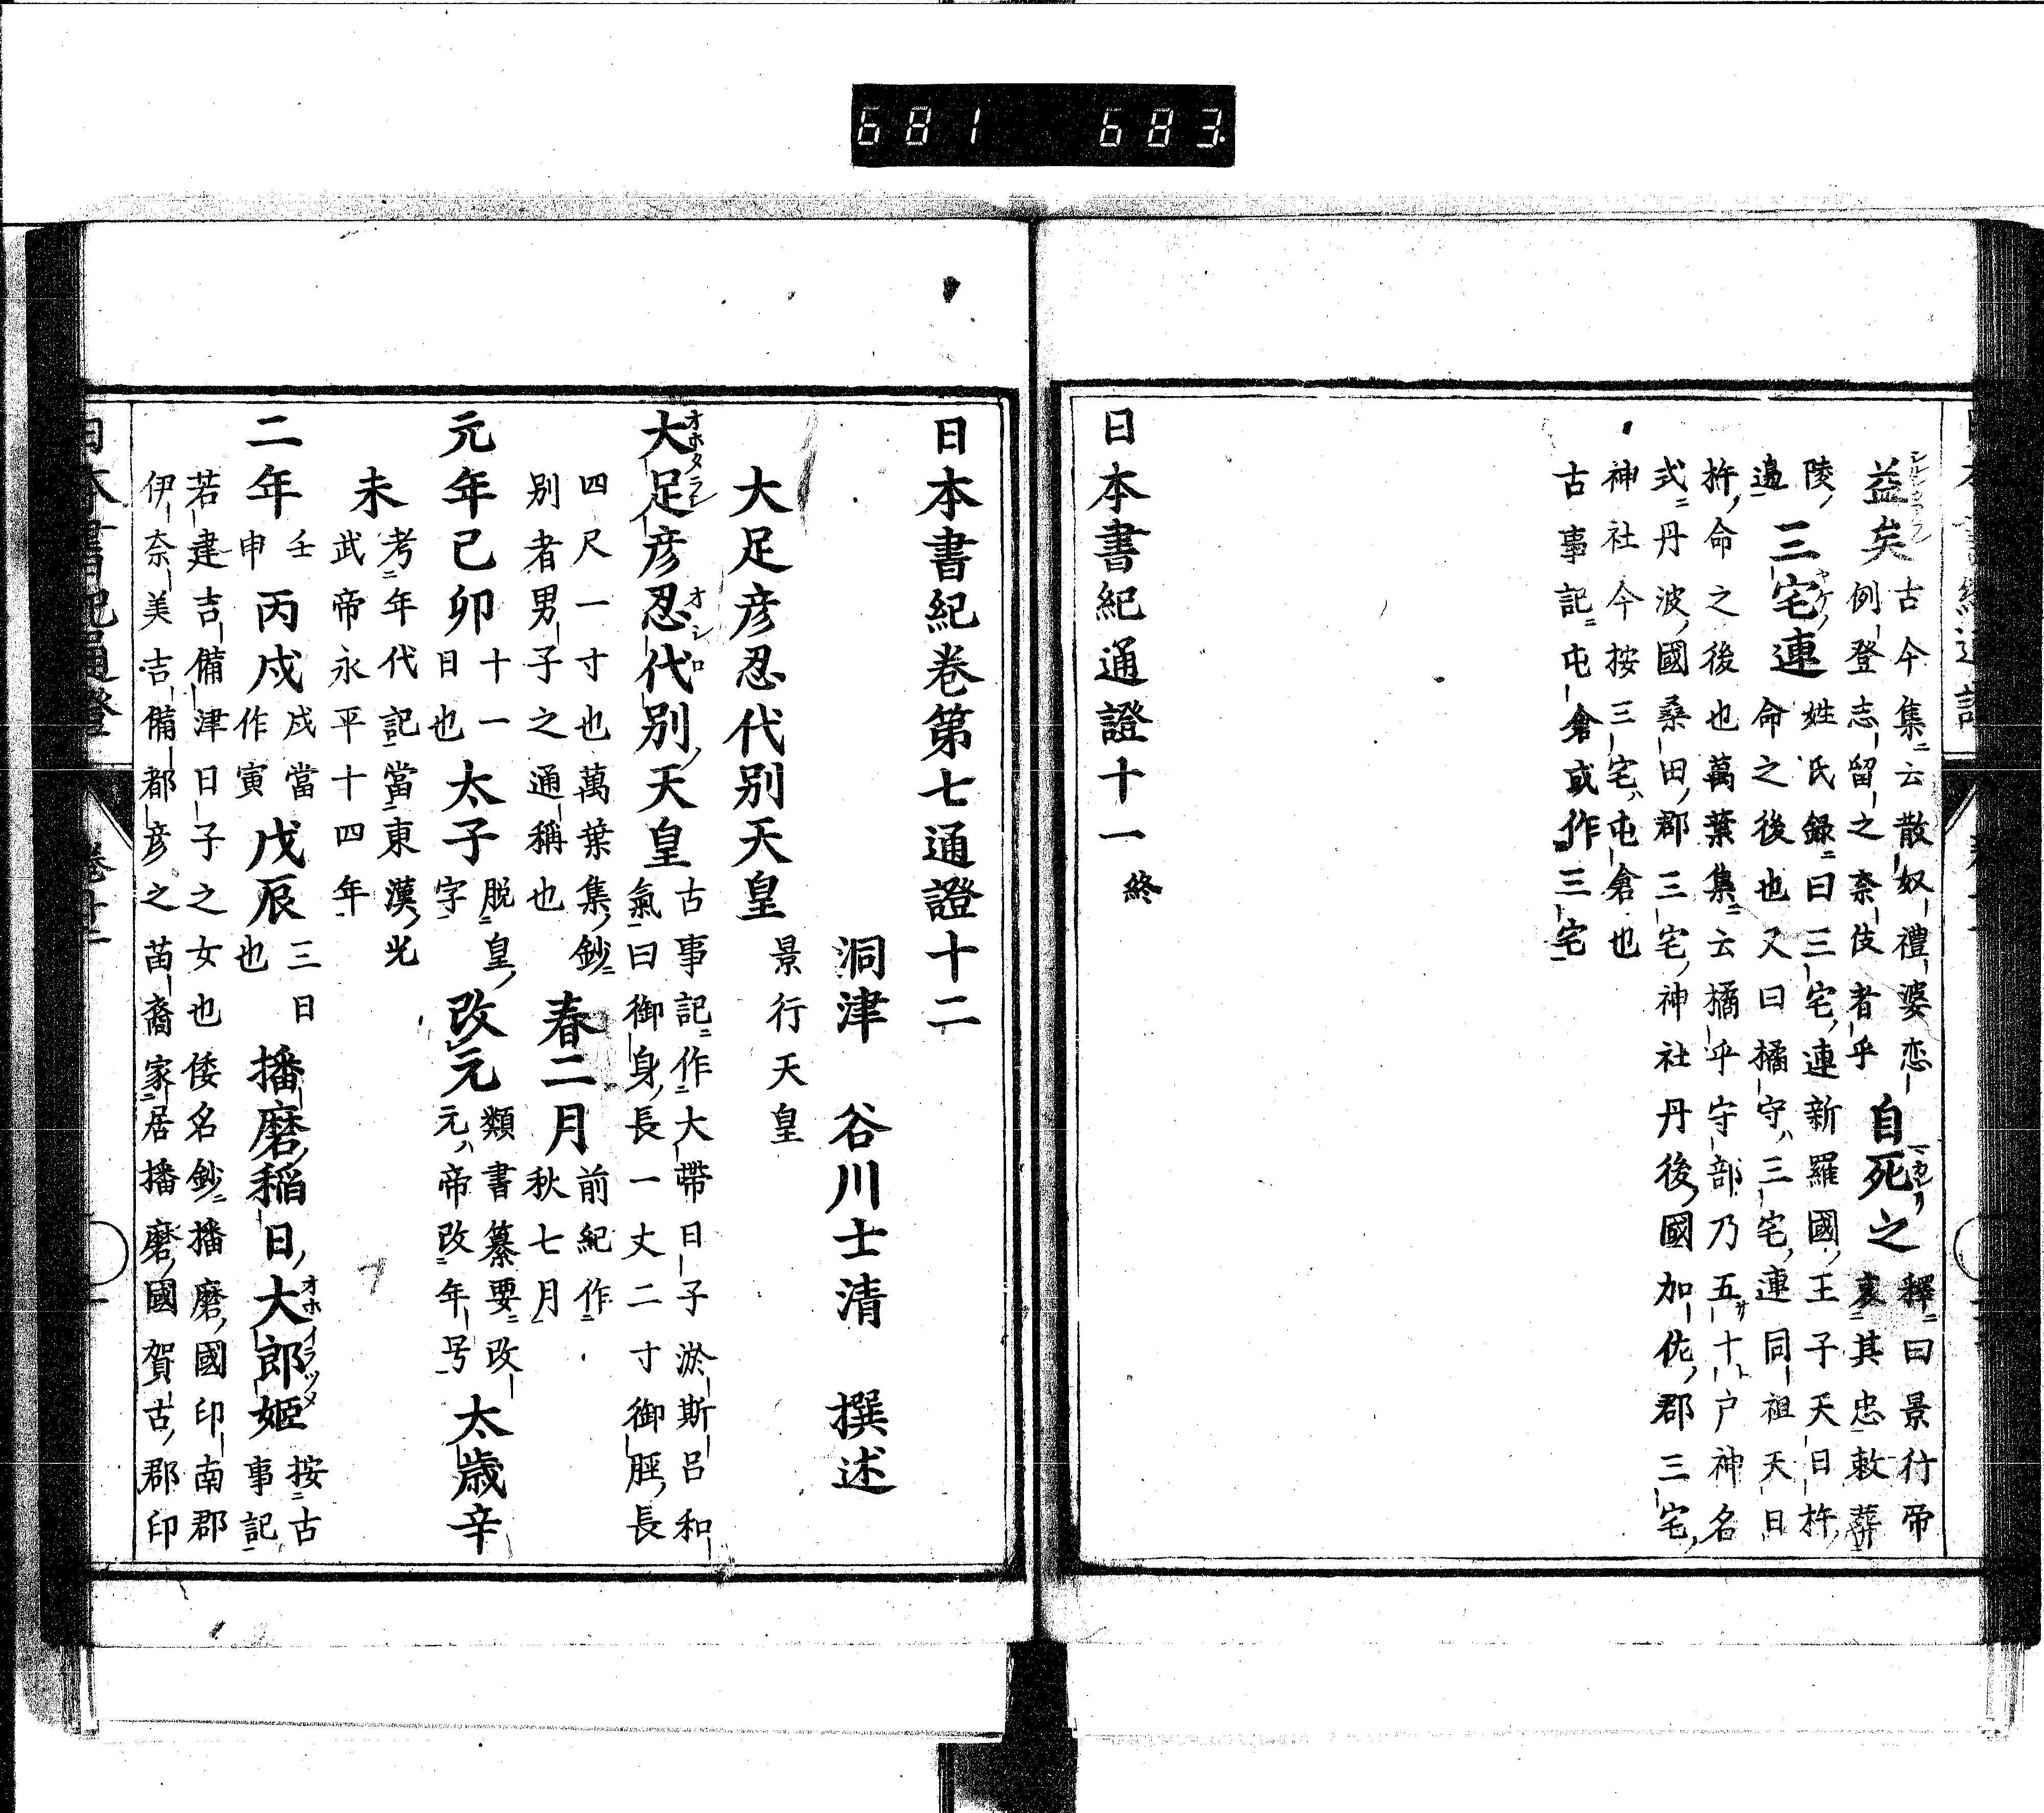 益矣 古今集云散奴禮婆恋
例登志留之奈伎者乎 自死之 釋曰景行帝
哀其忠敕葬
陵
邊 三宅連 姓氏録曰三宅連新羅國王子天日杵
命之後也又曰橘守三宅連同祖天日
杵命之後也萬葉集云橘乎守部乃五十戸神名
式丹波國桑田郡三宅神社丹後國加佐郡三宅
神社今按三宅屯倉也
古事記屯倉或作三宅
日本書紀通證十一 終
日本書紀卷第七通證十二
洞津 谷川士清 撰述
大足彦忍代別天皇 景行天皇
大足彦忍代別天皇 古事記作大帶日子淤斯呂和
氣曰御身長一丈二寸御脛長
四尺一寸也萬葉集鈔
別者男子之通稱也 春二月 前紀作
秋七月
元年己卯 十一
日也 太子 脱皇
字 改元 類書纂要改
元ハ帝改年号 太歳辛
未 考年代記當東漢光
武帝永平十四年
二年 壬
申 丙戌 戌當
作寅 戊辰 三日
也 播磨稲日大郎姫 按古
事記
若建吉備津日子之女也倭名鈔播磨國印南郡
伊奈美吉備都彦之苗裔家居播磨國賀古郡印